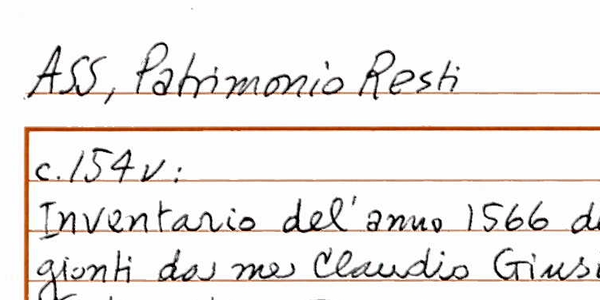 ASS, Patrimonio Resti
c.154v:
Inventario del'anno 1566 di
gionti da me Claudio Giusi